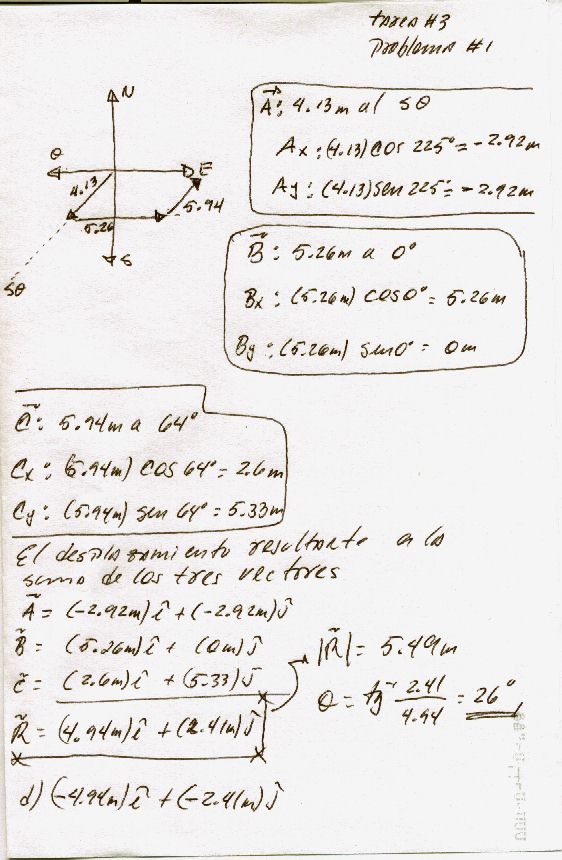 tarea #3
Problema #1
N
O
E
4.13
5.94
5.26
S
SO
A: 4.13m al SO
Ax: (4.13) cos 225° = -2.92m
Ay: (4.13) sen 225° = -2.92m
B: 5.26m a 0°
Bx: (5.26m) cos 0° = 5.26m
By: (5.26m) sen 0° = 0m
C: 5.94m a 64°
Cx: (5.94m) cos 64° = 2.6m
Cy: (5.94m) sen 64° = 5.33m
El desplazamiento resultante a la
suma de los tres vectores
A = (-2.92m)î + (-2.92m)ĵ
B = (5.26m)î + (0m)ĵ
C = (2.6m)î + (5.33)ĵ
R = (4.94m)î + (2.41m)ĵ
|R| = 5.49m
θ = tg⁻¹ 2.41/4.94 = 26°
d) (-4.94m)î + (-2.41m)ĵ